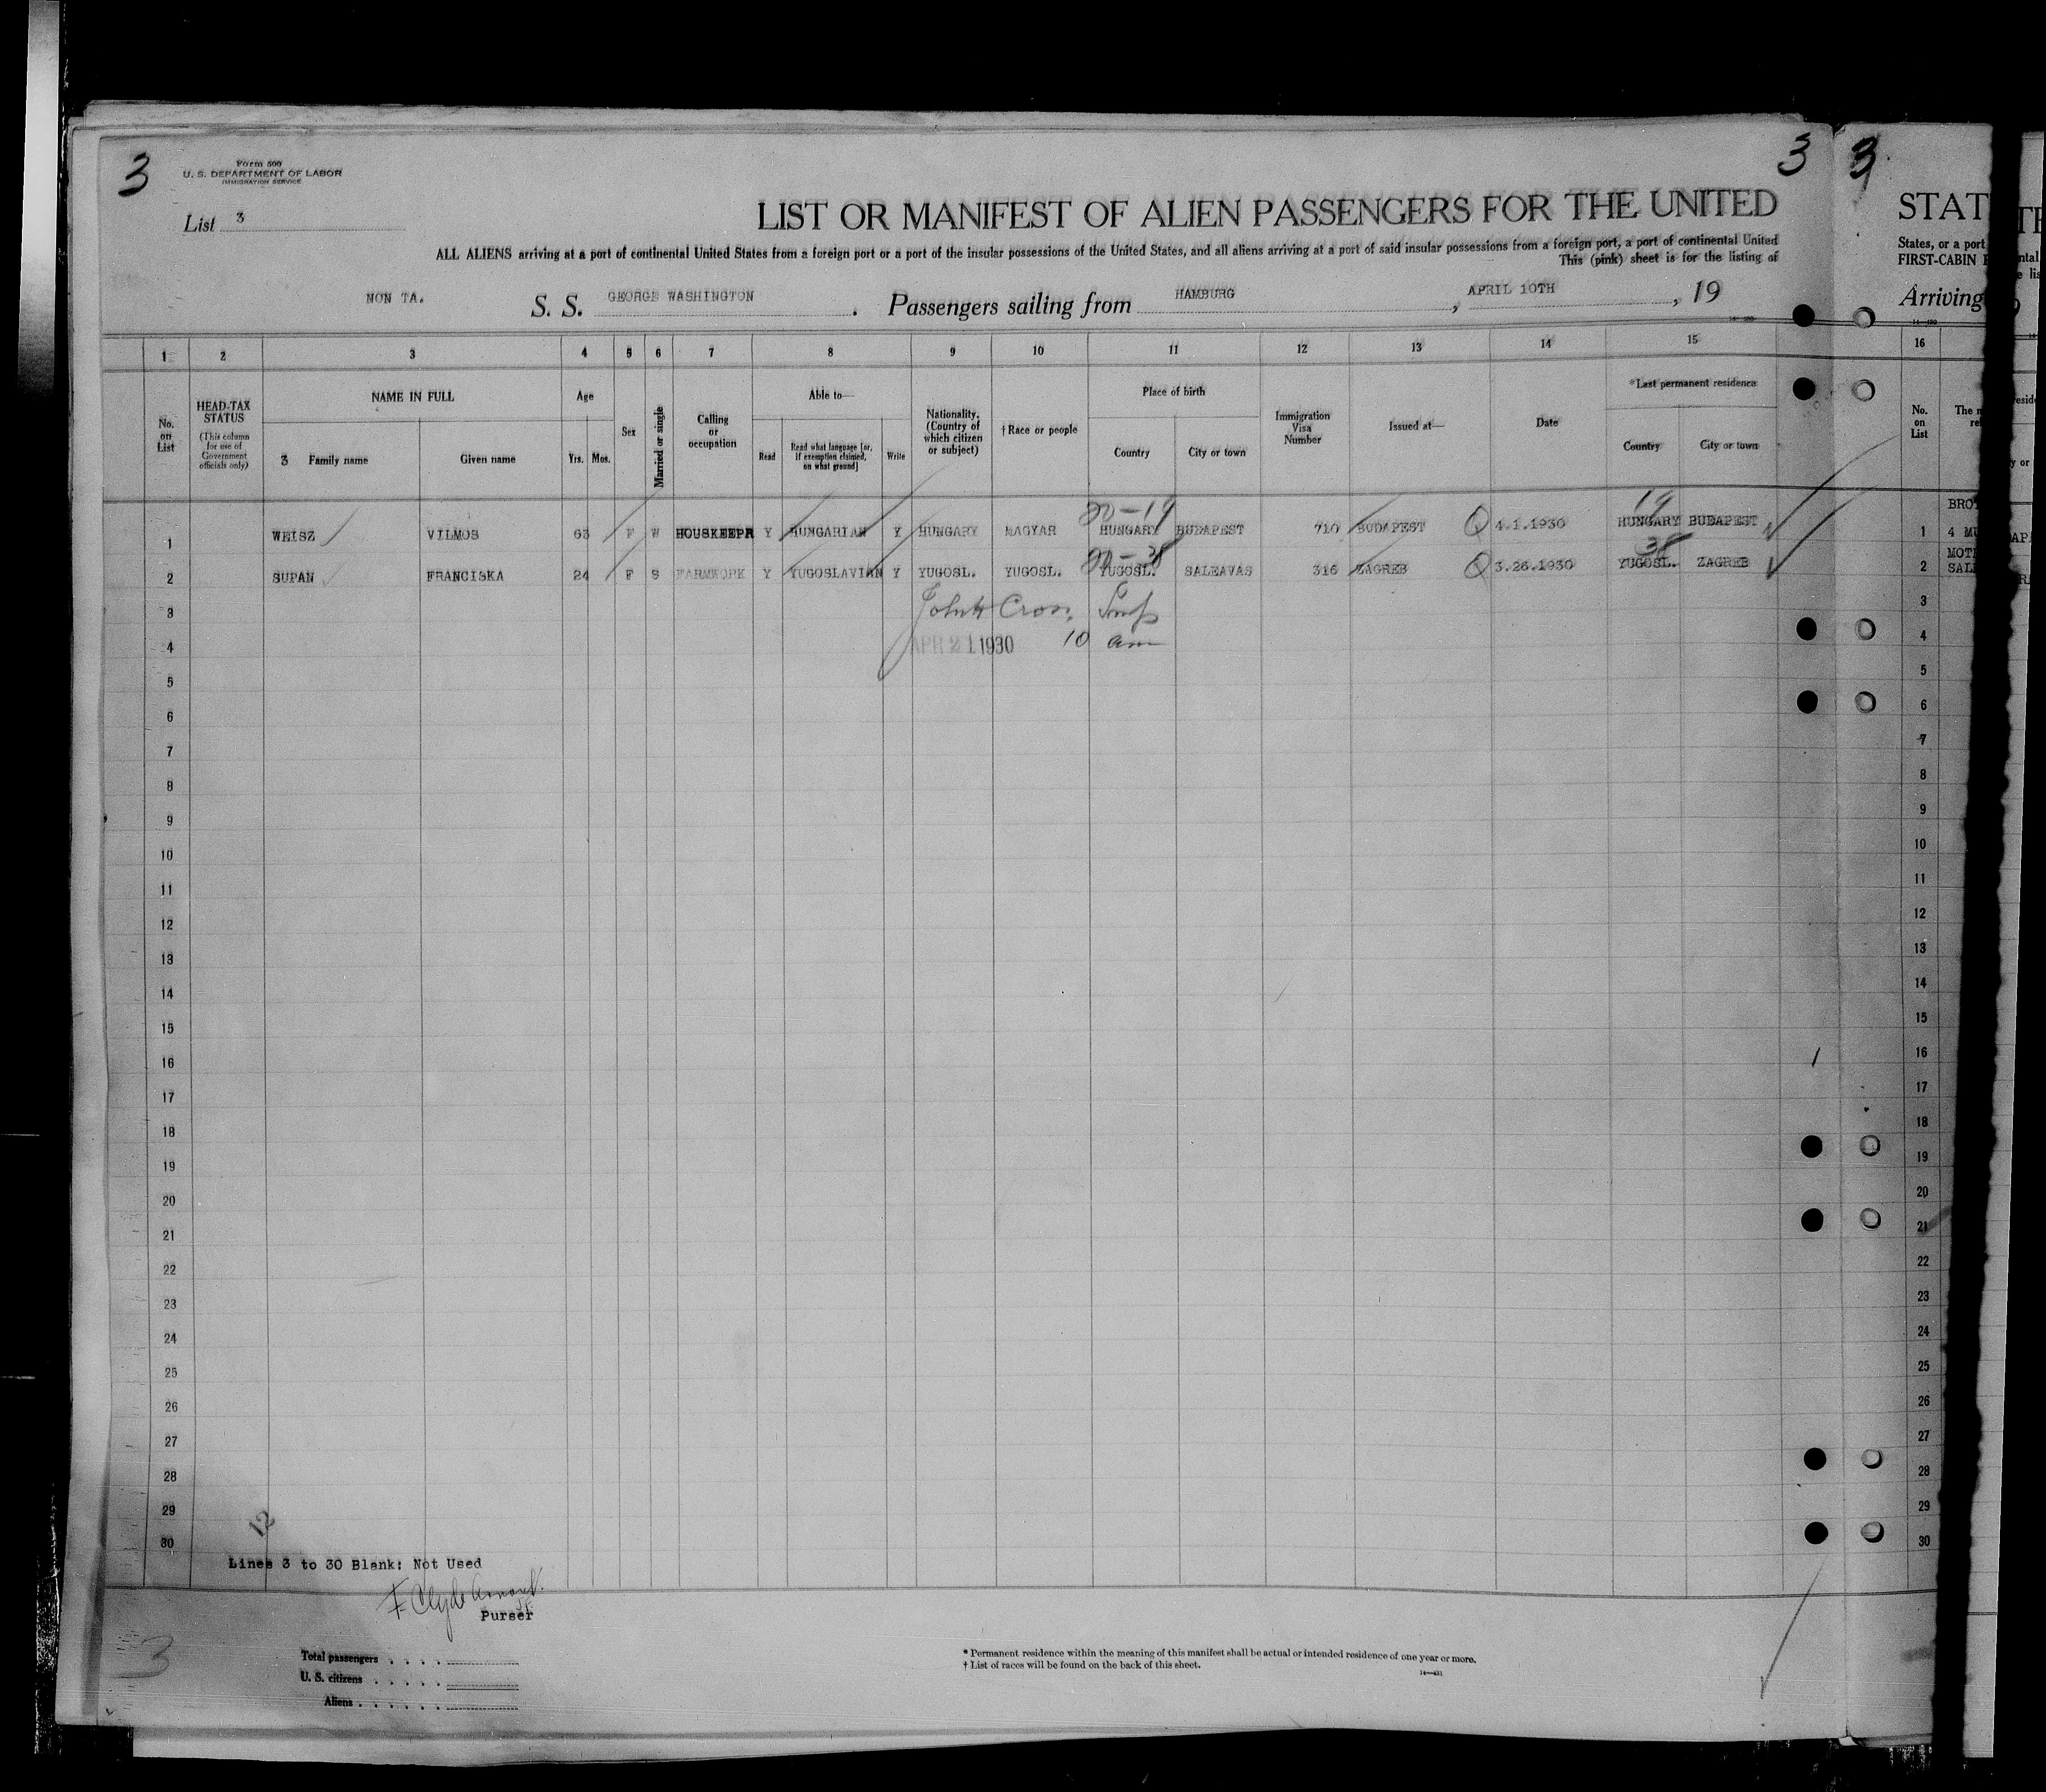 3 3 3
Form 500
U. S. DEPARTMENT OF LABOR
IMMIGRATION SERVICE
List 3
LIST OR MANIFEST OF ALIEN PASSENGERS FOR THE UNITED STAT
ALL ALIENS arriving at a port of continental United States from a foreign port or a port of the insular possessions of the United States, and all aliens arriving at a port of said insular possessions from a foreign port, a port of continental United States, or a port
This (pink) sheet is for the listing of FIRST-CABIN
NON TA. S. S. GEORGE WASHINGTON. Passengers sailing from HAMBURG, APRIL 10TH, 19 Arriving
1 2 3 4 5 6 7 8 9 10 11 12 13 14 15 16
No. on List
HEAD-TAX STATUS
(This column for use of Government officials only)
NAME IN FULL
3 Family name Given name
Age
Yrs. Mos.
Sex
Married or single
Calling or occupation
Able to—
Read
Read what language [or, if exemption claimed, on what ground]
Write
Nationality. (Country of which citizen or subject)
† Race or people
Place of birth
Country City or town
Immigration Visa Number
Issued at—
Date
*Last permanent residence
Country City or town
No. on List
20-19 19
1 WEISZ VILMOS 63 F W HOUSKEEPR Y HUNGARIAN Y HUNGARY MAGYAR HUNGARY BUDAPEST 710 BUDAPEST Q 4.1.1930 HUNGARY BUDAPEST 1 4
20-38 38
2 SUPAN FRANCISKA 24 F S FARMWORK Y YUGOSLAVIAN Y YUGOSL. YUGOSL. YUGOSL. SALEAVAS 316 ZAGREB Q 3.26.1930 YUGOSL. ZAGREB 2
3 John H Cross, Insp 3
4 APR 21 1930 10 am 4
5 5
6 6
7 7
8 8
9 9
10 10
11 11
12 12
13 13
14 14
15 15
16 16
17 17
18 18
19 19
20 20
21 21
22 22
23 23
24 24
25 25
26 26
27 27
28 28
29 29
30 30
12
Lines 3 to 30 Blank: Not Used
F Clyde
Purser
3
Total passengers . . . .
U. S. citizens . . . . .
Aliens . . . . . .
* Permanent residence within the meaning of this manifest shall be actual or intended residence of one year or more.
† List of races will be found on the back of this sheet.